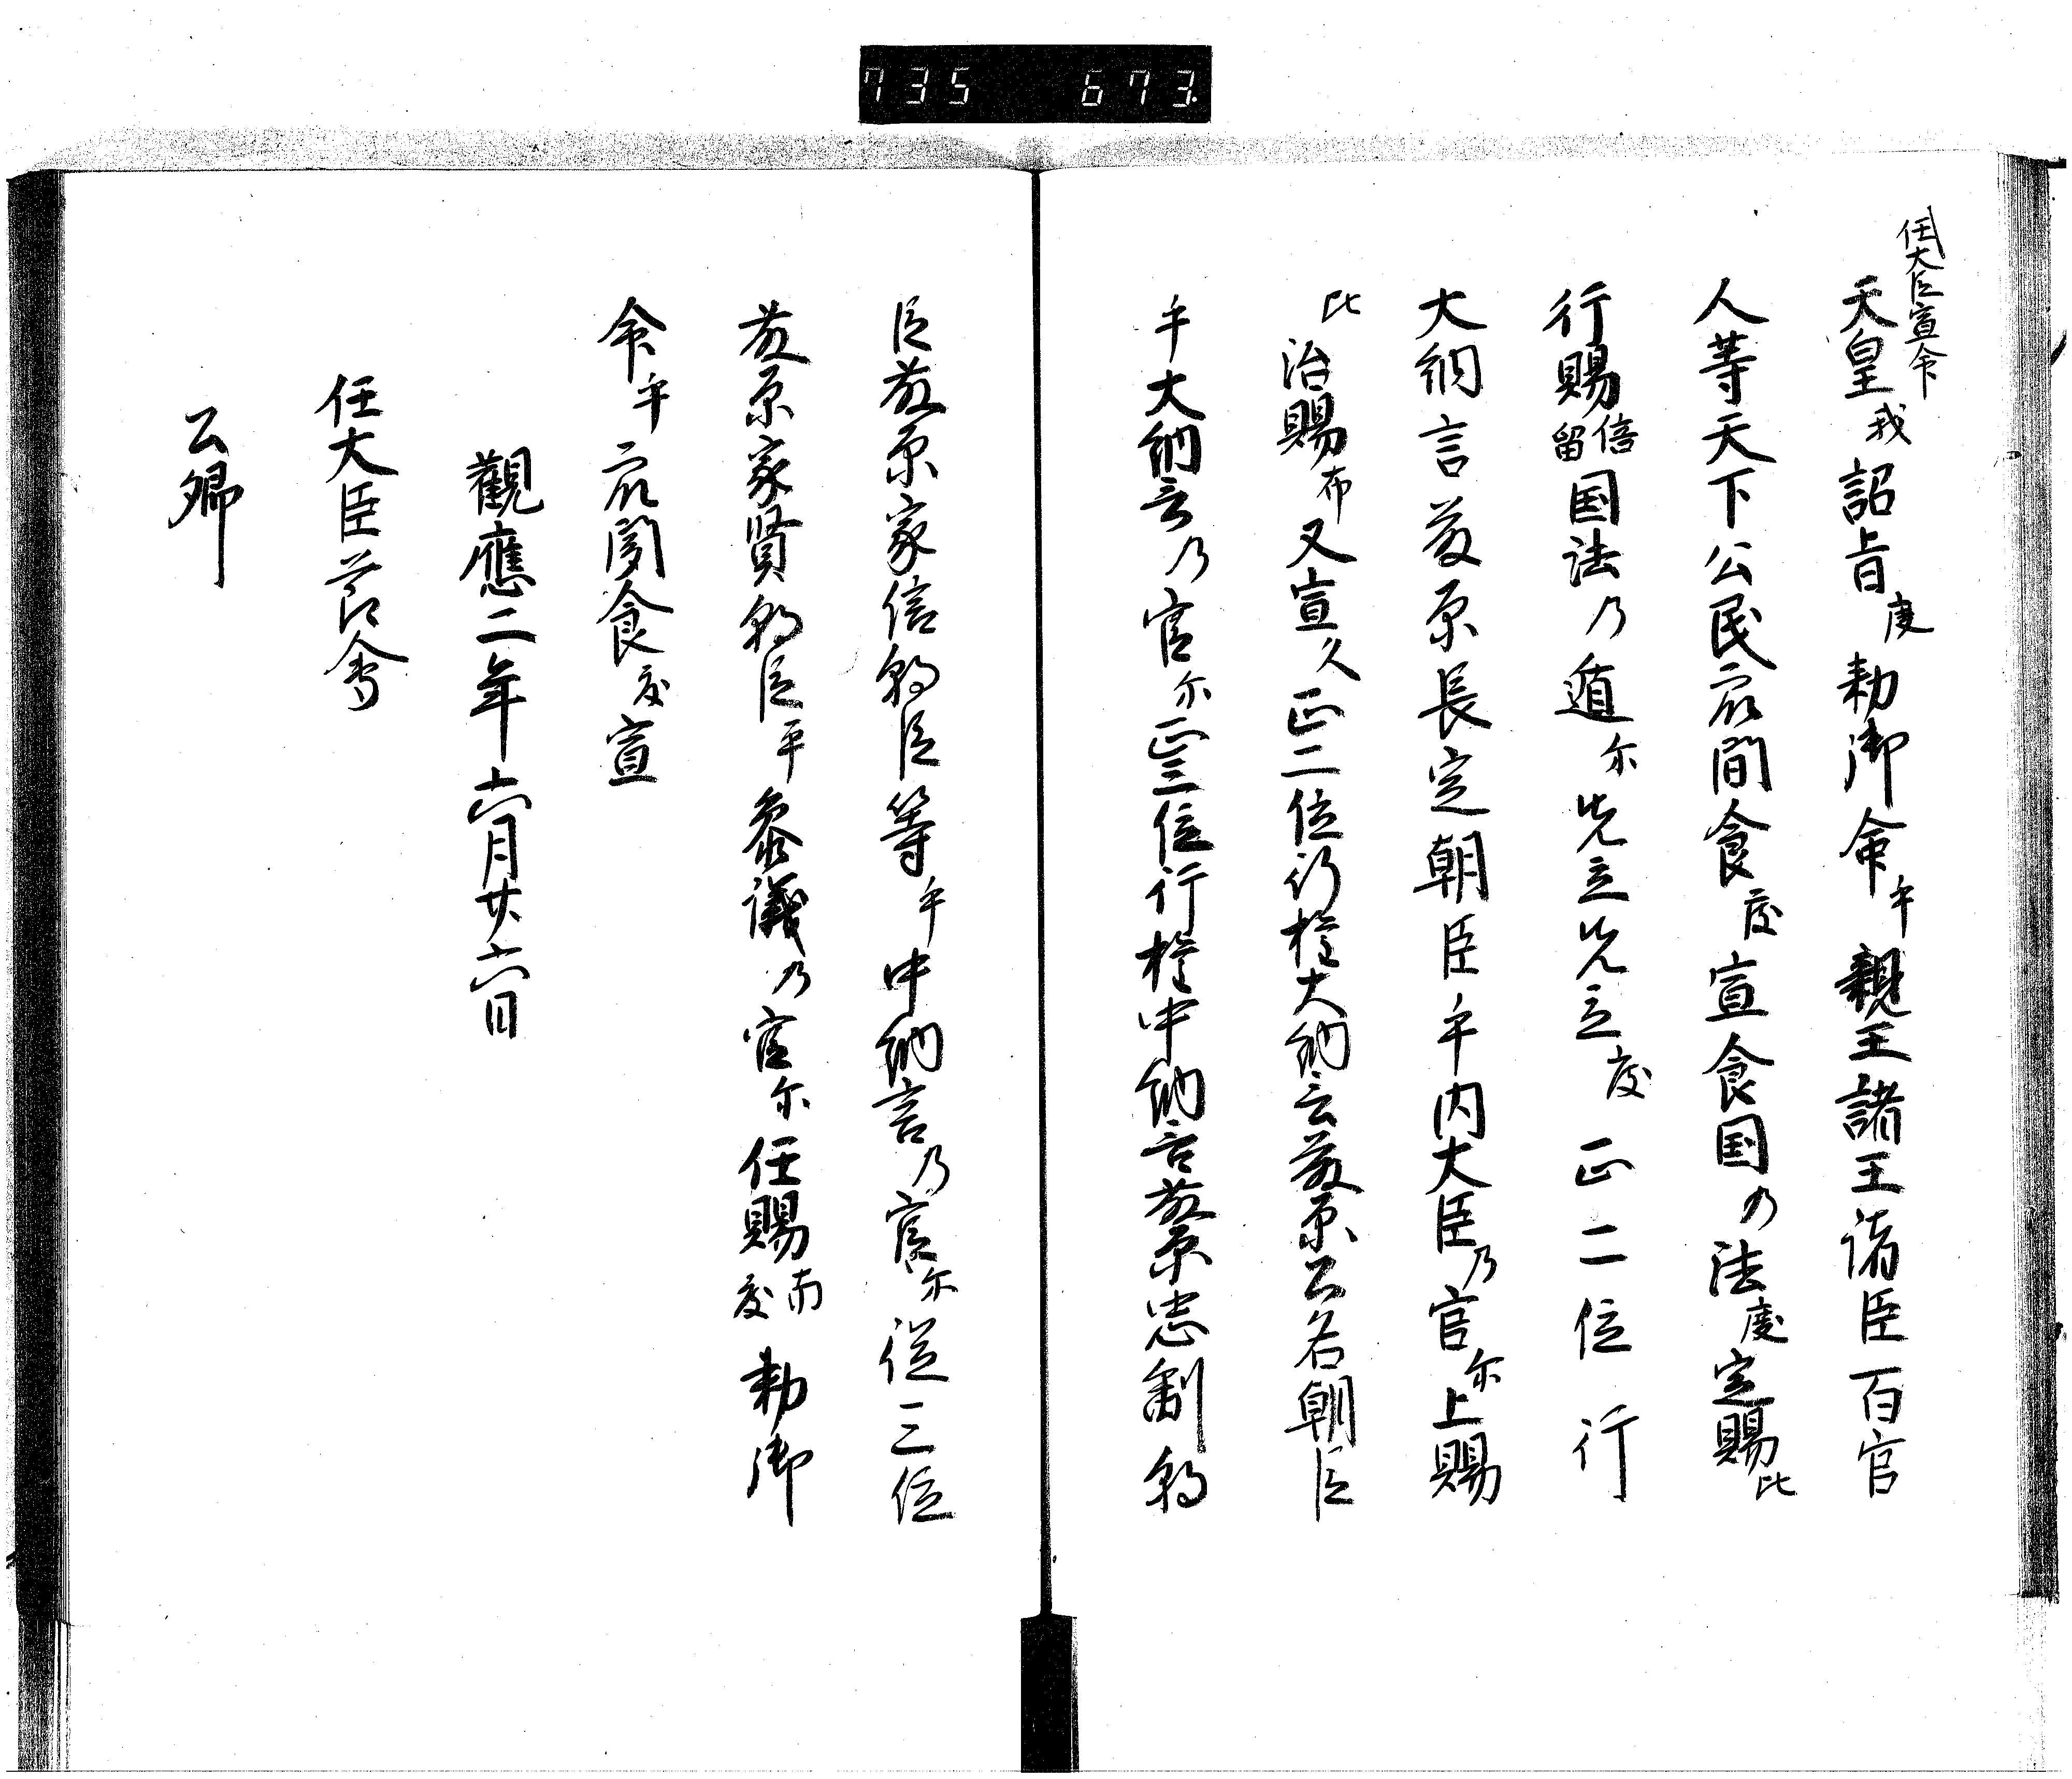 735 673
任大臣宣命
天皇我詔旨度勅御命乎親王諸王諸臣百官
人等天下公民衆聞食度宣食国乃法度定賜比
行賜倍留国法乃随尓先立先立度正二位行
大納言藤原長定朝臣乎内大臣乃官尓上賜
比治賜布又宣久正二位行権大納言藤原公名朝臣
乎大納言乃官尓正三位行権中納言藤原忠嗣朝
臣藤原家信朝臣等乎中納言乃官尓従三位
藤原家賢朝臣乎参議乃官尓任賜布度勅御
命乎衆聞食度宣
観應二年六月廿六日
任大臣節会
公卿